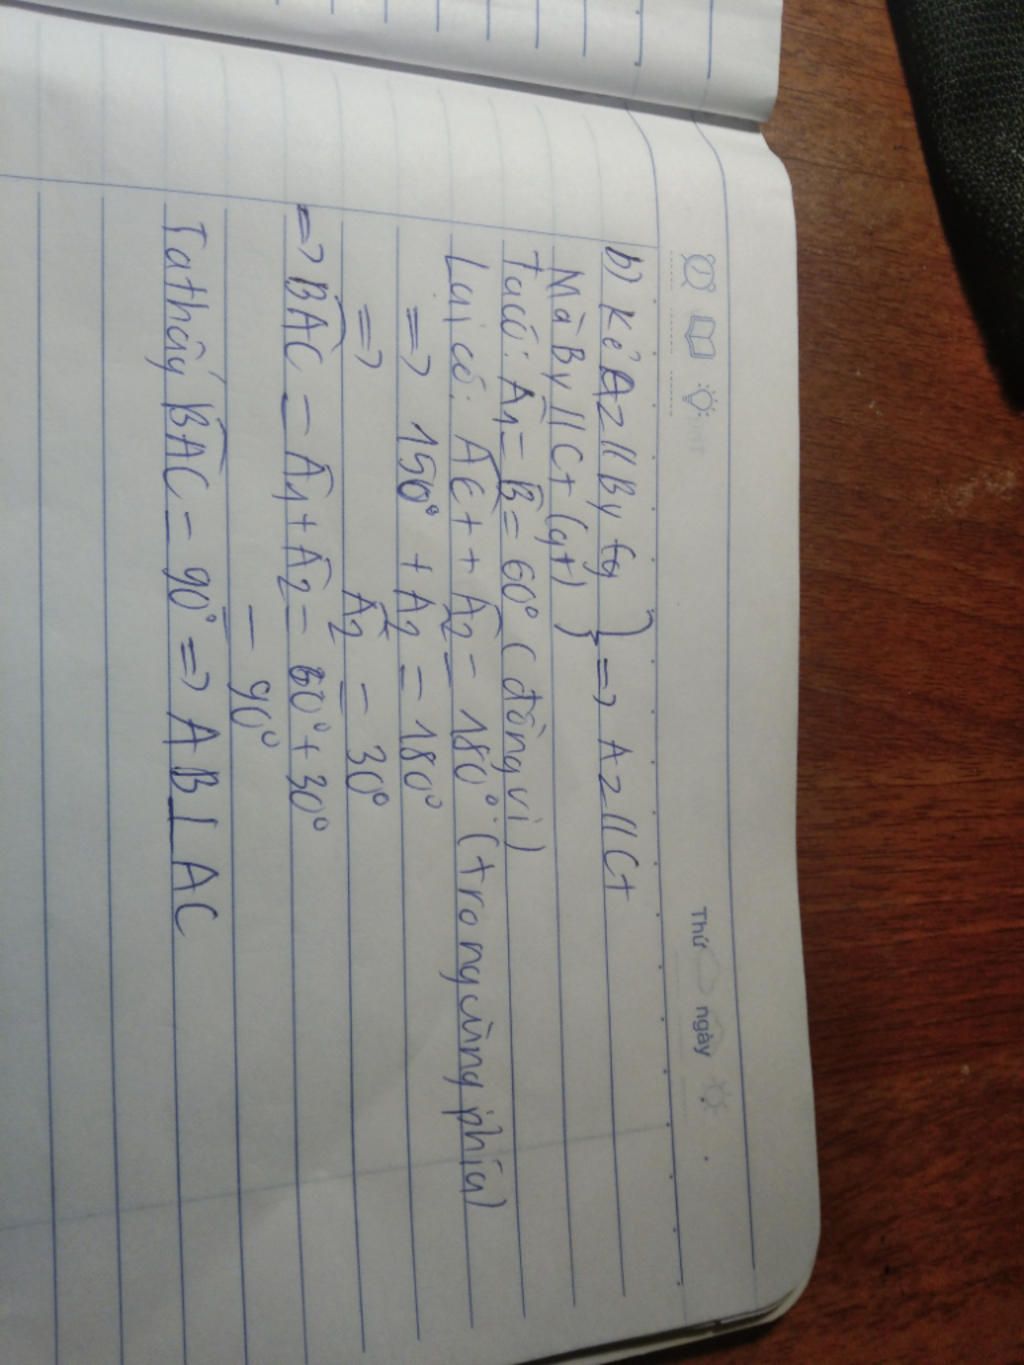 Thứ ngày
b) Kẻ Az // By (g } => Az // Ct
Mà By // Ct (gt)
Ta có: Â1 = B̂ = 60° (đồng vị)
Lại có: AĈt + Â2 = 180° (trong cùng phía)
=> 150° + Â2 = 180°
=> Â2 = 30°
=> BÂC = Â1 + Â2 = 60° + 30°
= 90°
Ta thấy BÂC = 90° => AB ⊥ AC